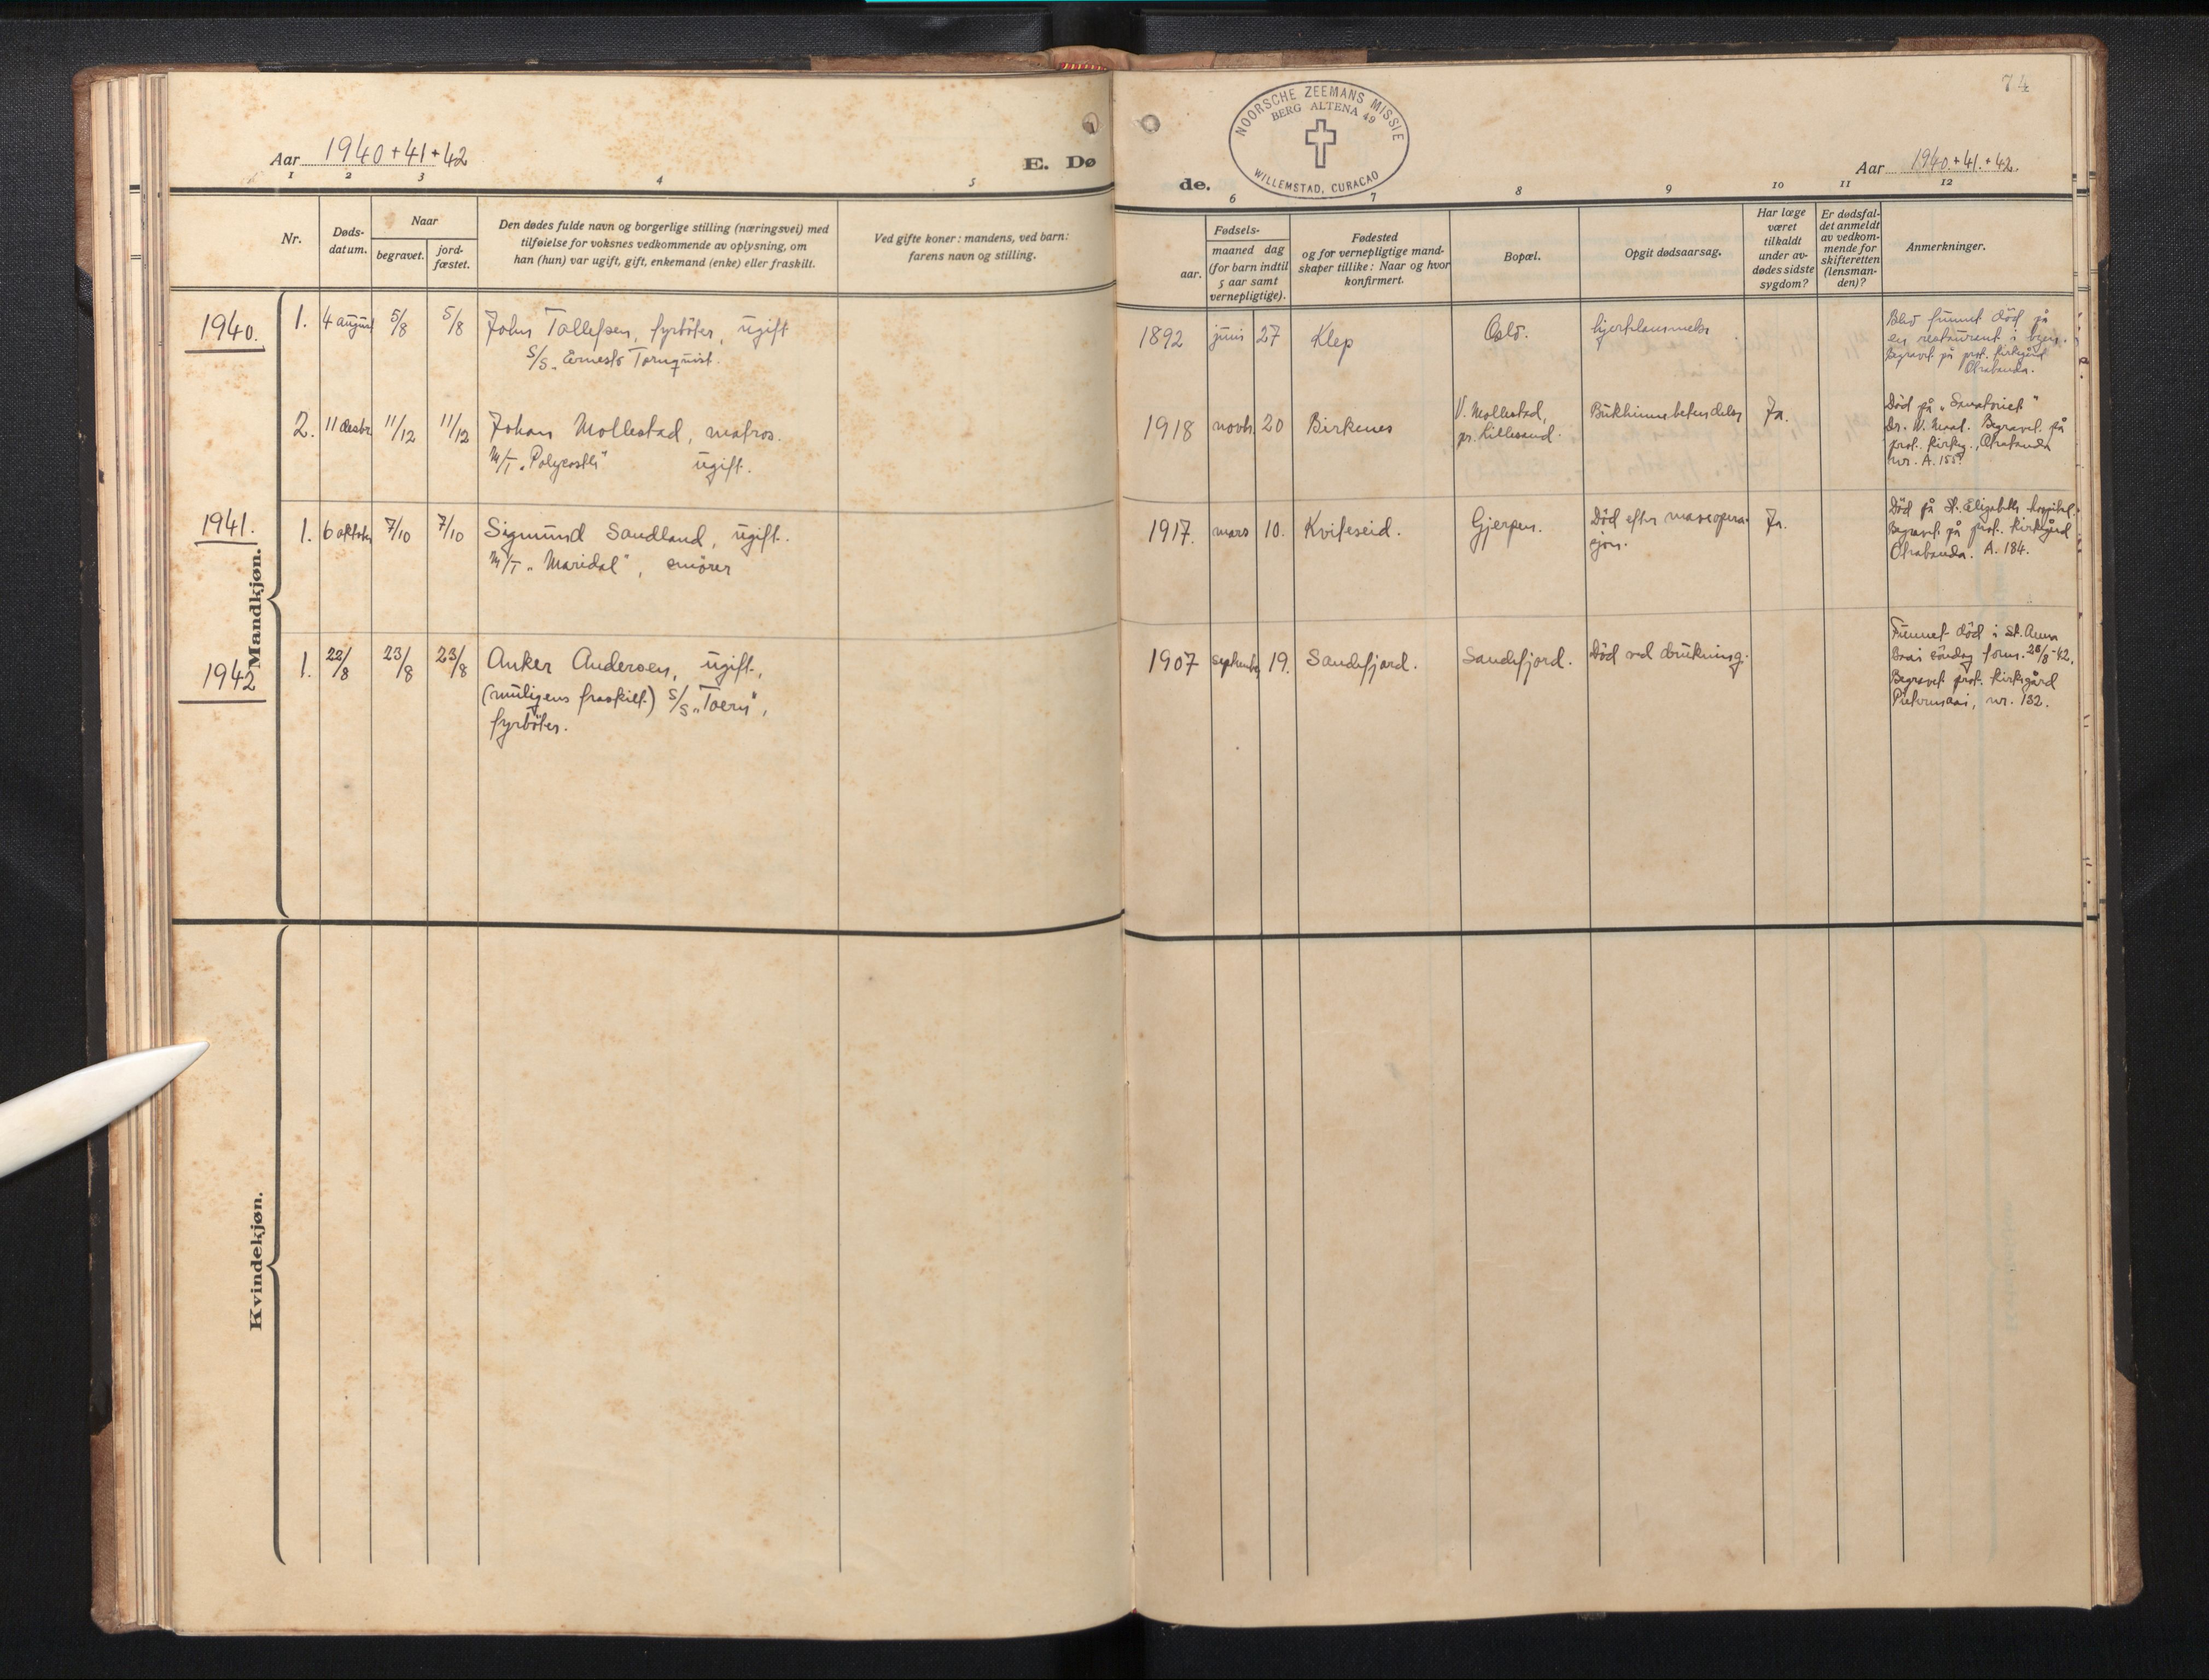 Aar 1940+41+42
E. Dø
1 2 3 4 5
Nr.
Døds-
datum.
Naar
begravet.
jord-
fæstet.
Den dødes fulde navn og borgerlige stilling (næringsvei) med
tilføielse for voksnes vedkommende av oplysning, om
han (hun) var ugift, gift, enkemand (enke) eller fraskilt.
Ved gifte koner: mandens, ved barn:
farens navn og stilling.
1940.
1. 4 august 5/8 5/8 John Tollefsen, fyrböter, ugift
S/S „Ernesto Tornquist.
2. 11 desbr 11/12 11/12 Johan Mollestad, matros.
M/T „Polycastle" ugift.
1941.
1. 6 oktober 7/10 7/10 Sigmund Sandland, ugift.
M/T „Maridal", smörer
1942
1. 22/8 23/8 23/8 Anker Andersen, ugift,
(muligens fraskilt) S/S „Toern",
fyrböter.
Mandkjøn.
Kvindekjøn.
74
NOORSCHE ZEEMANS MISSIE
BERG ALTENA 49
WILLEMSTAD, CURACAO
de.
Aar 1940.+41.+42.
6 7 8 9 10 11 12
Fødsels-
aar.
maaned dag
(for barn indtil
5 aar samt
vernepligtige).
Fødested
og for vernepligtige mand-
skaper tillike: Naar og hvor
konfirmert.
Bopæl.
Opgit dødsaarsag.
Har læge
været
tilkaldt
under av-
dødes sidste
sygdom?
Er dødsfal-
det anmeldt
av vedkom-
mende for
skifteretten
(lensman-
den)?
Anmerkninger.
1892 juni 27 Klep Oslo. hjertelammelse
Blev funnet död på
en restaurant i byen.
Begravet på prot. kirkegård
Otrabanda.
1918 novbr 20 Birkenes
V. Mollestad,
pr. Lillesand.
Bukhinnebetendelse Ja.
Död på „Sanatoriet"
Dr. V. Maal. Begravet på
prot. kirkeg., Otrabanda
nr. A. 155.
1917. mars 10. Kviteseid. Gjerpen.
Död efter maveopera-
sjon.
Ja.
Död på St. Elizabeths hospital.
Begravet på prot. kirkegård
Otrabanda. A. 184.
1907 september 19. Sandefjord. Sandefjord. Död ved drukning.
Funnet död i St. Anna
Baai söndag form. /8-42.
Begravet prot. kirkegård
Pietermaai, nr. 132.